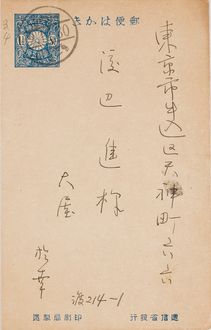 郵便はかき
東京市牛込区天神町六六
渡辺進様
大屋
渡214-1
遞信省發行
印刷局製造